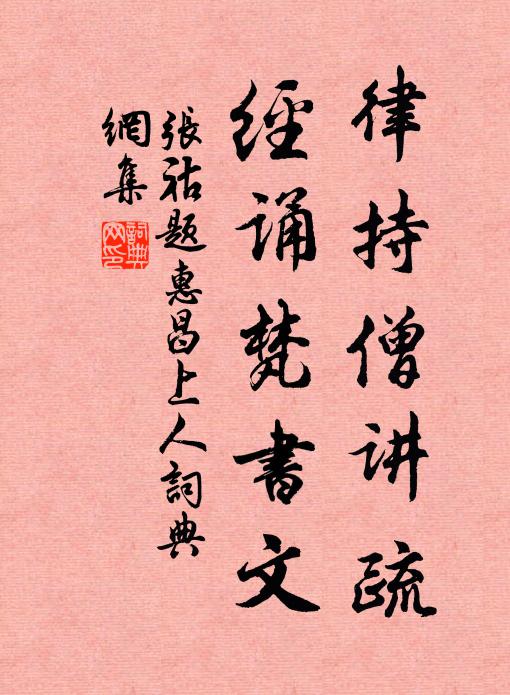 律持僧讲疏
經誦梵書文
張祜題惠昌上人詞典
網集
詞典
网印